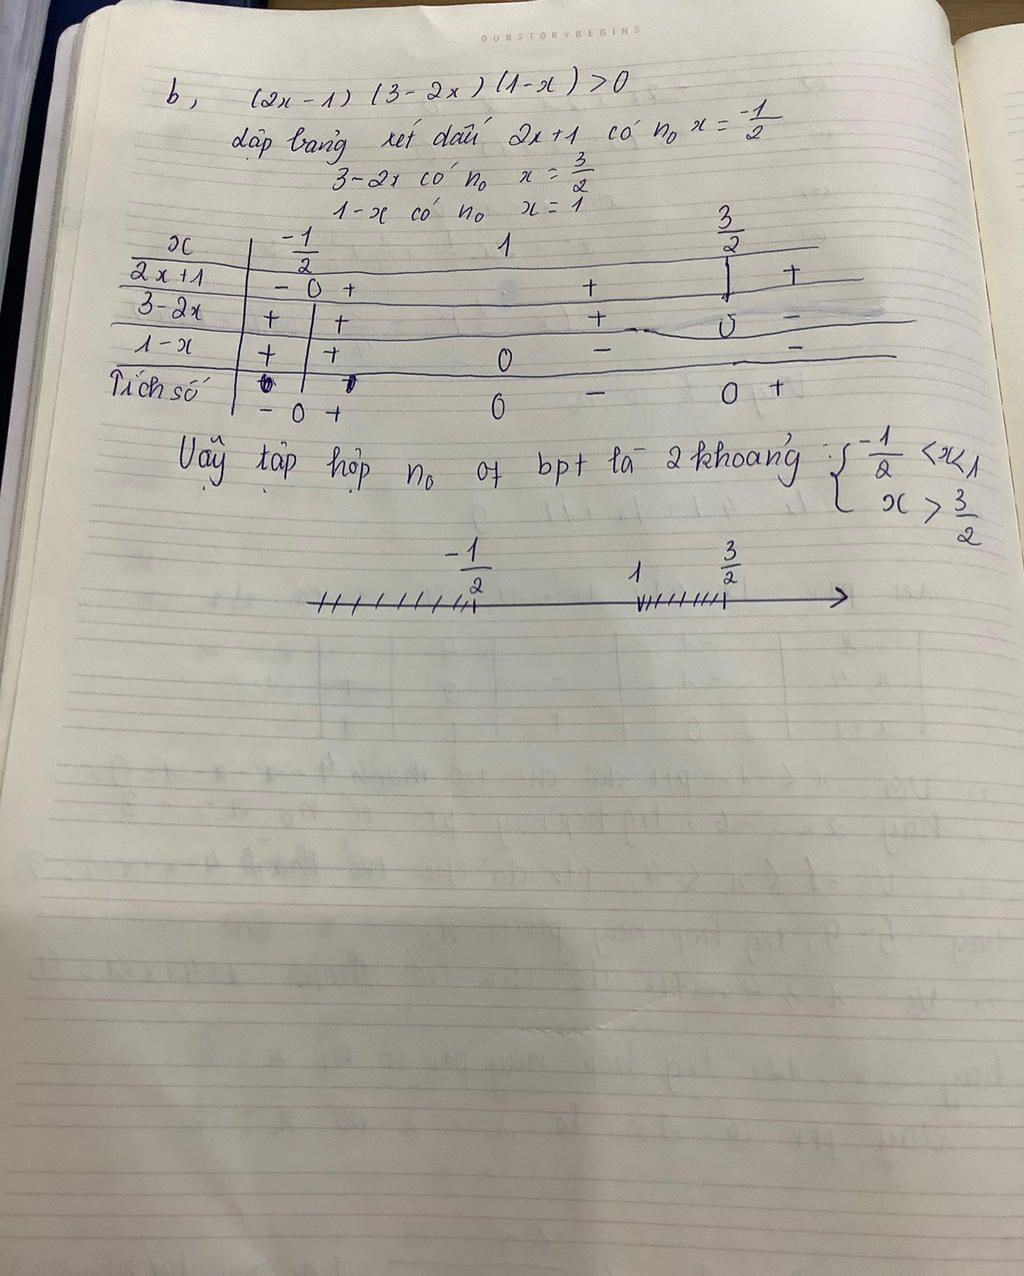 OURSTORYBEGINS
b, (2x - 1) (3 - 2x) (1 - x) > 0
Lập bảng xét dấu 2x + 1 có n₀ x = -1/2
3 - 2x có n₀ x = 3/2
1 - x có n₀ x = 1
x -1/2 1 3/2
2x + 1 - 0 + + | +
3 - 2x + | + + 0 -
1 - x + | + 0 - -
Tích số - 0 + 0 - 0 +
Vậy tập hợp n₀ of bpt là 2 khoảng : { -1/2 < x < 1
x > 3/2
-1/2 1 3/2